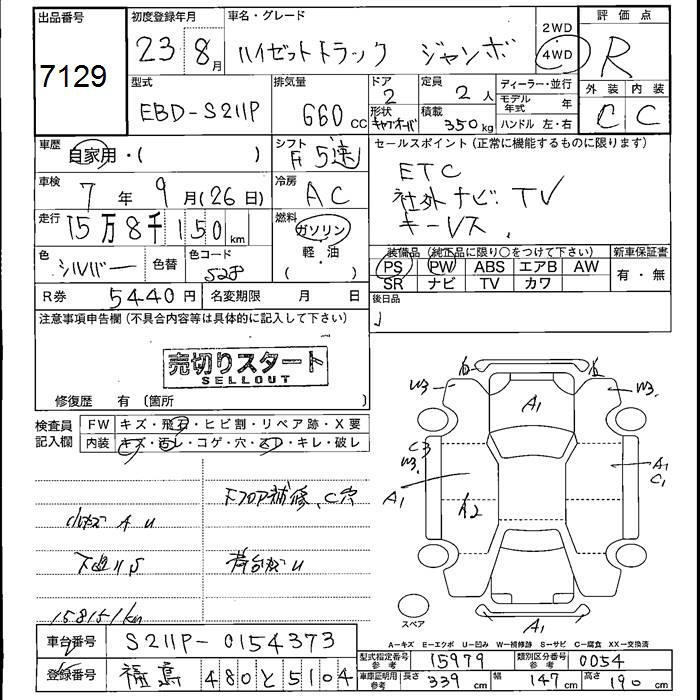 出品番号
7129
初度登録年月
23 8月
車名・グレード
ハイゼットトラック ジャンボ
2WD
4WD
評価点
R
外装 内装
C C
型式
EBD-S211P
排気量
660cc
ドア
2
形状
キャブオーバ
定員
2人
積載
350kg
ディーラー・並行
モデル年式 年
ハンドル 左・右
車歴
自家用・( )
シフト
F 5速
セールスポイント (正常に機能するものに限ります)
ETC
社外ナビ TV
キーレス
車検
7年 9月(26日)
冷房
AC
走行
15万8千150km
燃料
ガソリン
軽・油
( )
色
シルバー
色替
色コード
S28
装備品 (純正品に限り○をつけて下さい)
PS PW ABS エアB AW
SR ナビ TV カワ
新車保証書
有・無
R券 5440円
名変期限 月 日
後日品
注意事項申告欄 (不具合内容等は具体的に記入して下さい)
売切りスタート
SELLOUT
修復歴 有 〔箇所 〕
検査員記入欄
FW キズ・飛石・ヒビ割・リペア跡・X要
内装 キズ・汚レ・コゲ・穴・スレ・キレ・破レ
フロア補修、C穴
小キズ A U
下廻りS
荷台キズU
158151km
W3 W3
A1
C3
W3
A1
A2
A1
C1
A1
スペア
A=キズ E=エクボ U=凹み W=補修跡 S=サビ C=腐食 XX=交換済
車台番号 S211P-0154373
登録番号 福島 480 と 5104
型式指定番号 参考 15979
類別区分番号 参考 0054
車庫証明用 参考 長さ 339cm 幅 147cm 高さ 190cm